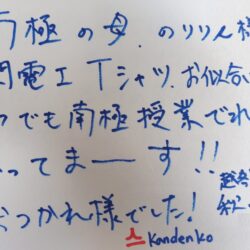 南極の母、のりりん様
関電工Tシャツ、お似合い
つでも南極授業でれ
ってまーす!!
おつかれ様でした!
Kandenko